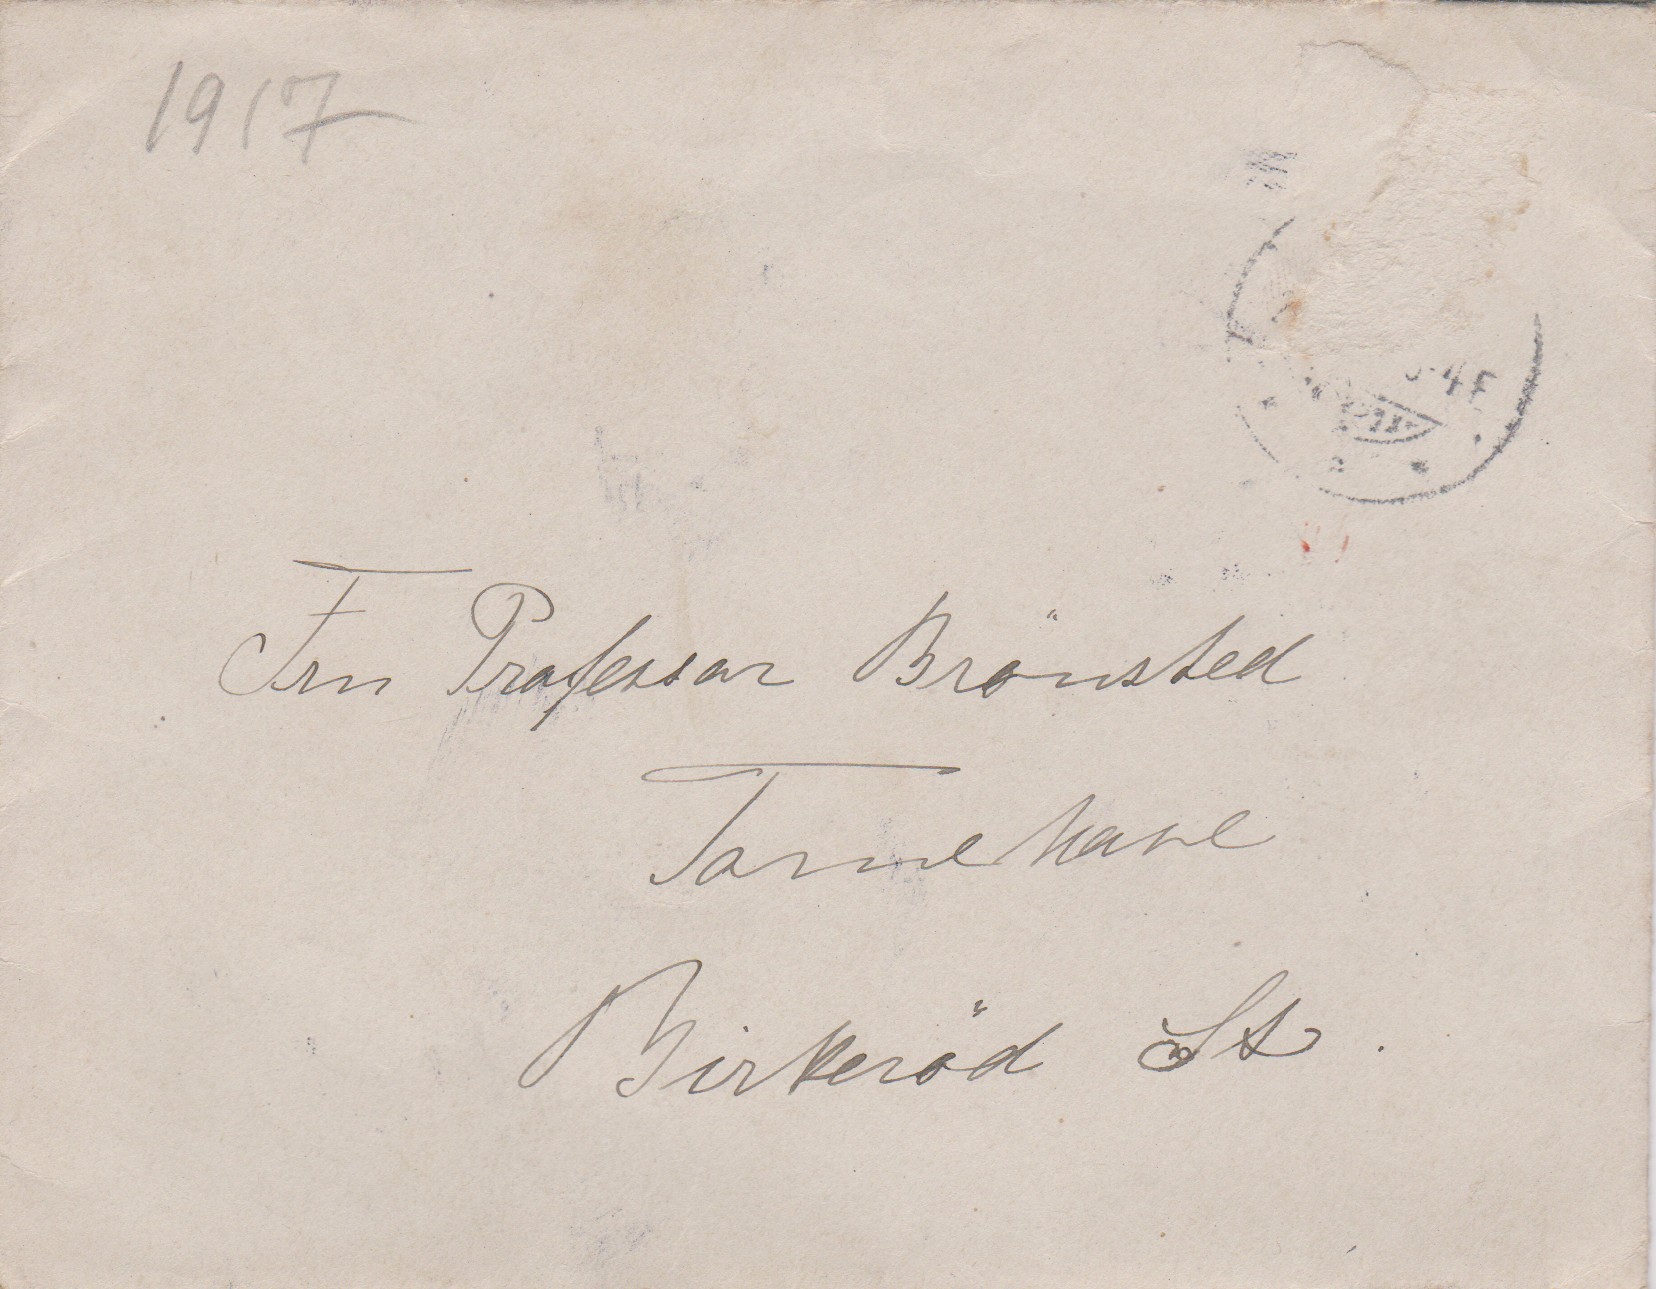 1917
4 F
Fru Professor Brönsted
Tornehave
Birkeröd St.